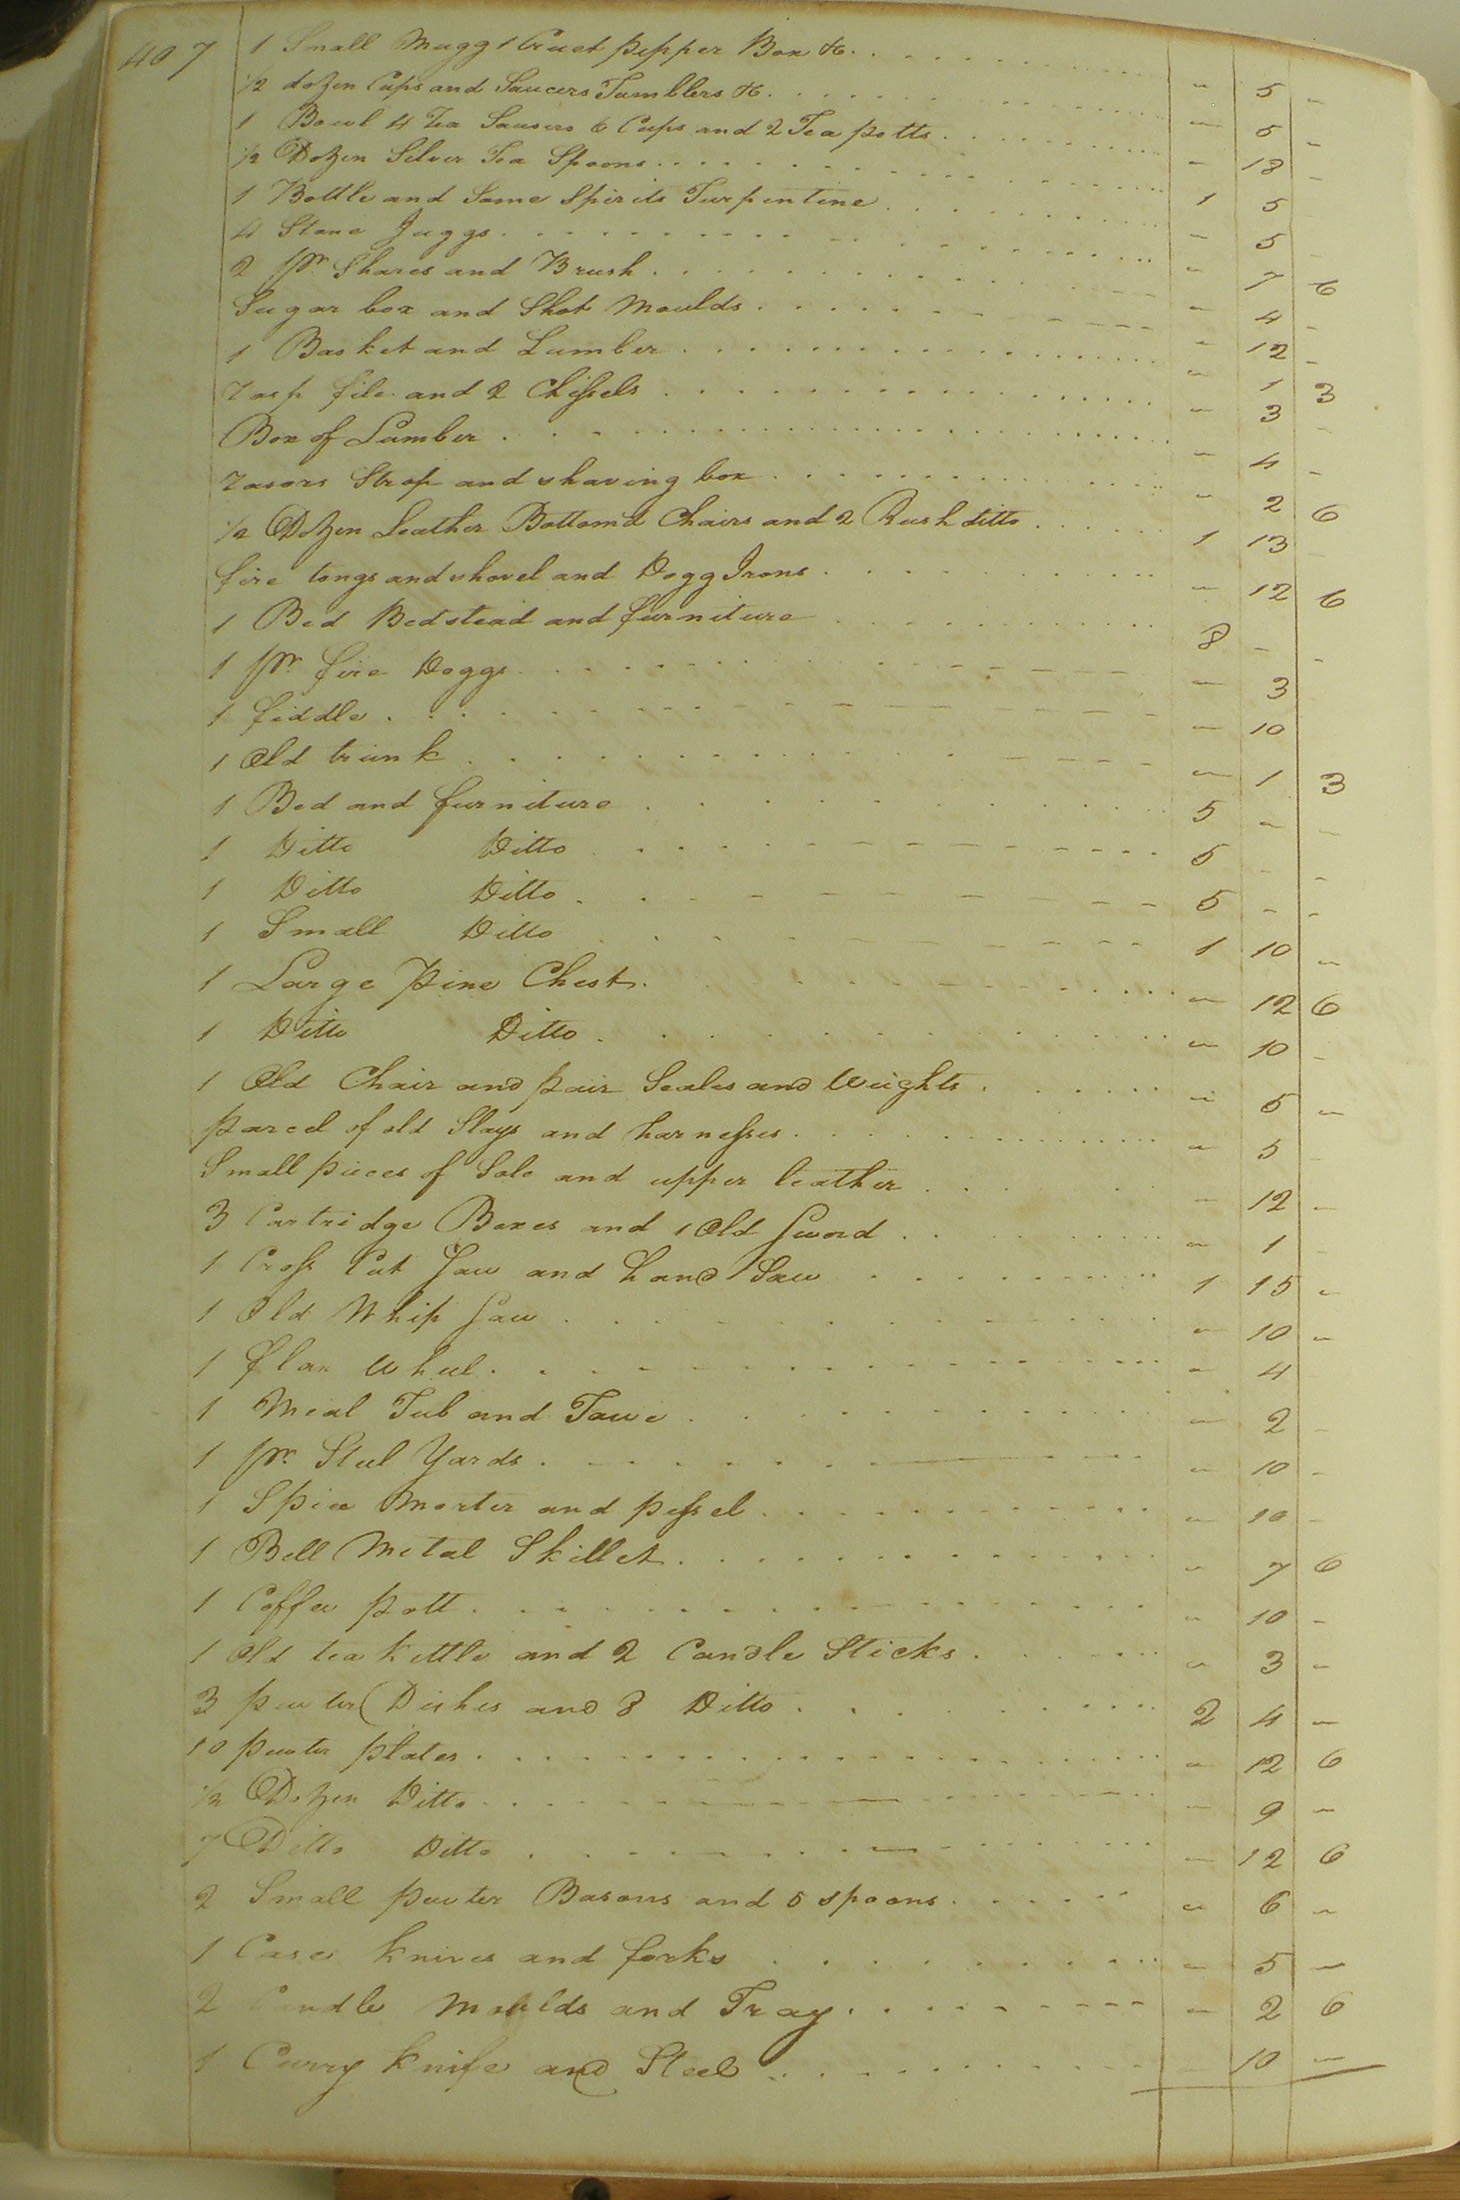 407
1 Small Mugg 1 Cruet pepper Box &c. - 5 -
1/2 dozen Cups and Saucers Tumblers &c. - 5 -
1 Bowl 4 Tea Sausers 6 Cups and 2 Tea potts - 18 -
1/2 Dozen Silver Tea Spoons 1 5
1 Bottle and Some Spirits Turpentine - 5 -
4 Stone Juggs - 7 6
2 pr Shares and Brush - 4 -
Sugar box and Shot Moulds - 12 -
1 Basket and Lumber - 1 3
rasp file and 2 Chissels - 3 -
Box of Lumber - 4 -
rasors Strop and shaving box - 2 6
1/2 Dozen Leather Bottom'd Chairs and 2 Rush ditto 1 13 -
fire tongs and shovel and Dogg Irons - 12 6
1 Bed Bedstead and furniture 8 - -
1 pr fire Doggs - 3
1 fiddle - 10
1 Old trunk - 1 3
1 Bed and furniture 5 - -
1 Ditto Ditto 5 - -
1 Ditto Ditto 5 - -
1 Small Ditto 1 10 -
1 Large Pine Chest - 12 6
1 Ditto Ditto - 10 -
1 Old Chair and pair Scales and Weights - 5 -
parcel of old Slays and harnesses - 5 -
Small pieces of Sole and upper leather - 12 -
3 Cartridge Boxes and 1 Old Sword - 1 -
1 Cross Cut Saw and hand Saw 1 15 -
1 Old Whip Saw - 10 -
1 flax wheel - 4
1 Meal Tub and - 2 -
1 pr Steel Yards - 10 -
1 Spice Morter and pessel - 10 -
1 Bell Metal Skillet - 7 6
1 Coffee pott - 10 -
1 Old tea kettle and 2 Candle Sticks - 3 -
3 pewter Dishes and 3 Ditto 2 4 -
10 pewter plates - 12 6
1/2 Dozen Ditto - 9 -
7 Ditto Ditto - 12 6
2 Small pewter Basons and 5 spoons - 6 -
1 Case knives and forks - 5 -
2 Candle Moulds and Tray - 2 6
1 Curry knife and Steel 10 -